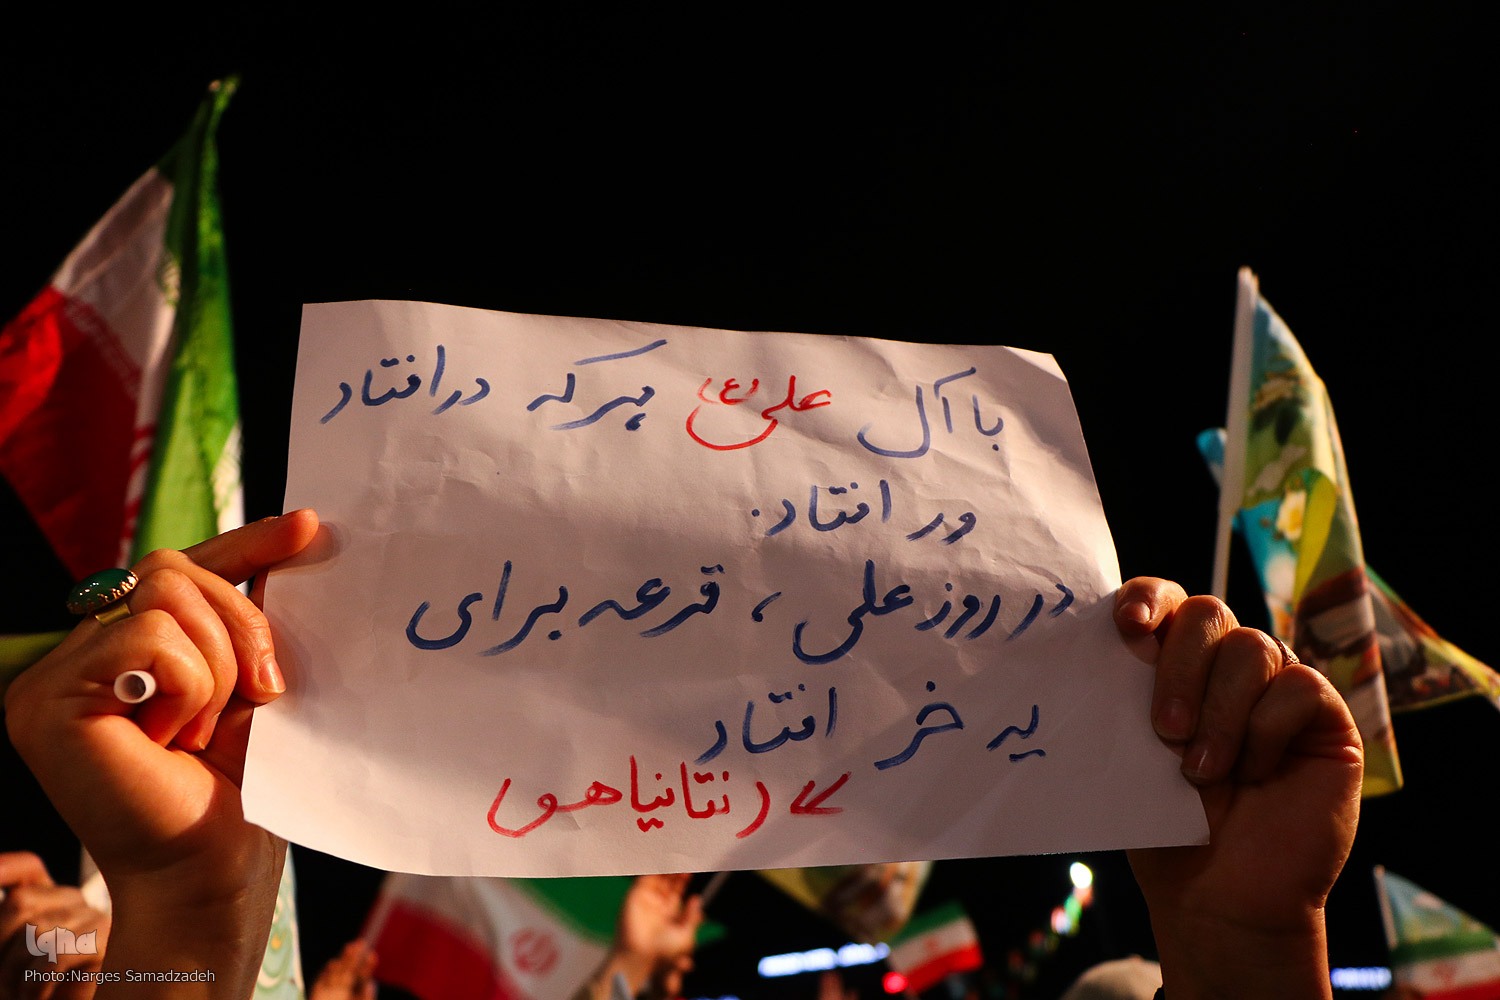 با آل علی (ع) هر که در افتاد
ور افتاد.
در روز علی، قرعه برای
یه خر افتاد
(نتانیاهو)
iqna
Photo:Narges Samadzadeh